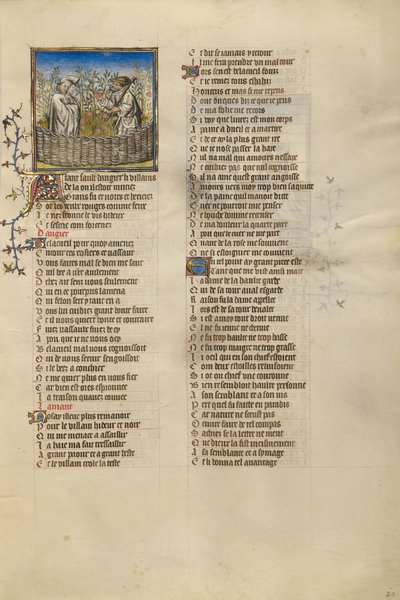 Atant sault dangier li villains
De la ou il estoit muciez
Grans fu et noirs et hericiez
Sot les yeulx rouges comme feux
Le nez fronce le vis hideux
Et sescrie com forcenez
Dangier
Belacueil pour quoy amenez
Entour ces rosiers ce vassaut
Vous faites mal se dieu me saut
Qui bee a vostre avilement
Dehez ait sans vous seulement
Qui en ce pourpris lamena
Qui felon sert itant en a
Vous lui cuidiez grant bonte faire
Et il vous quiert honte et contraire
Fuiez vassaulx fuiez de cy
A pou que je ne vous ocy
Belacueil mal vous cognoissoit
Qui de vous servir sengoissoit
Si le bez a conchier
Ne me quier plus en vous fier
Car bien est ores esprouvee
La traison quavez couvee
Lamant
Nosay illeuc plus remanoir
Pour le villain hideux et noir
Qui me menace a assaillir
La haie ma fait tressaillir
A grant paour et a grant heste
Et le villain crole la teste
Et dit se jamais y retour
Il me fera prendre un mal tour
Lors sen est belacueil fouiz
Et je remez tous esbahiz
Honteux et mas si me repens
Dont onques dix ce que je pens
De ma folie me recors
Si voy que livrez est mon corps
A paine a dueil et a martire
Et de ce ay la plus grant ire
Que je nose passer la haie
Nul na mal qui amours nessaie
Ne cuidiez pas que nul cognoisse
Sil na ame quest grant angoisse
Amours vers moy trop bien sacquite
De la paine quil mavoit dite
Cuer ne pourroit mie penser
Ne bouche domme recenser
De ma douleur la quarte part
A pou que le cuer ne me part
Quant de la rose me souvient
Que si eslongner me couvient
En ce point ay grant piece este
Tant que me vit ainsi mate
La dame de la haulte garde
Qui de sa tour aval esgarde
Raison fu la dame appellee
Lors est de sa tour devalee
Si est a moy tout droit venue
El ne fu jeune ne chenue
Ne fu trop haulte ne trop basse
Ne fu trop maigre ne trop grasse
Li oeil qui en son chief estoient
Com deux estoilles reluisoient
Si ot ou chief une couronne
Bien resembloit haulte personne
A son semblant et a son vis
Pert quel fu faite en paradis
Car nature ne sceust pas
Oeuvre faire de tel compas
Sachiez se la lettre ne ment
Que dieux la fist meismement
A sa semblance et a somage
Et li donna tel avantage